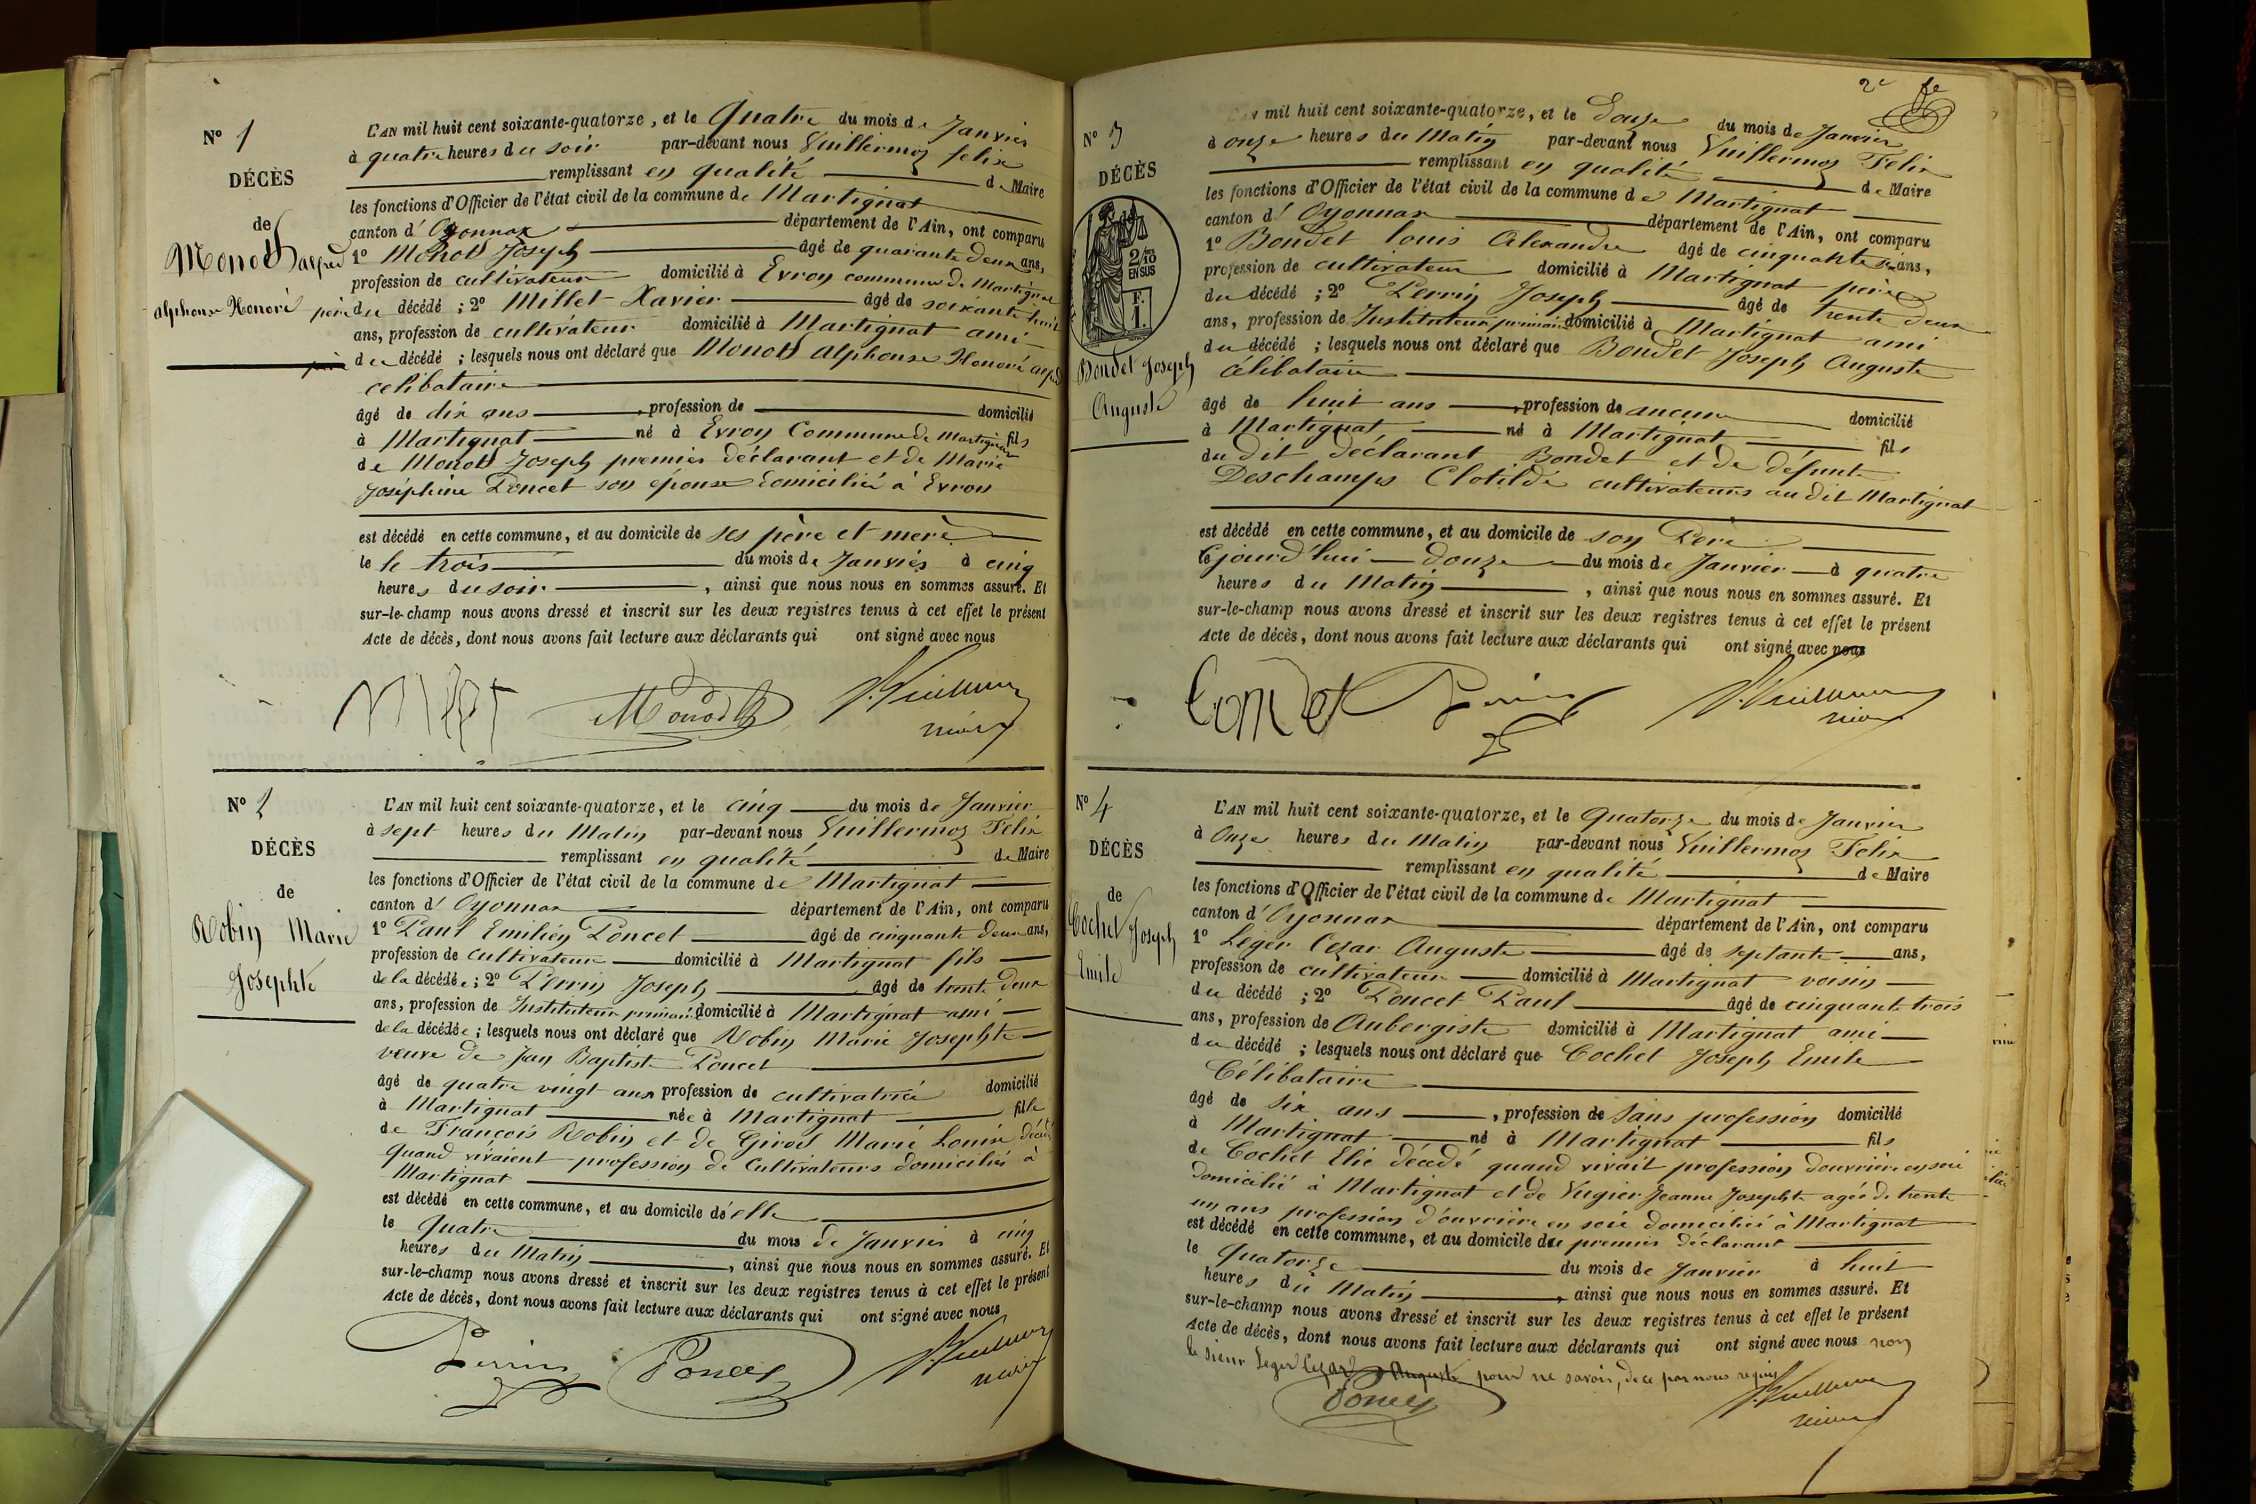 N° 1
DÉCÈS
de
Monod alfred
alphonse Honoré
L'AN mil huit cent soixante-quatorze, et le Quatre du mois de Janvier
à quatre heures du soir par-devant nous Vuillermoz felix
remplissant en qualité de Maire
les fonctions d'Officier de l'état civil de la commune de Martignat
canton d'Oyonnax département de l'Ain, ont comparu
1° Monod Joseph âgé de quarante deux ans,
profession de cultivateur domicilié à Evron commune de Martignat
père du décédé ; 2° Millet Xavier âgé de soixante huit
ans, profession de cultivateur domicilié à Martignat ami
du décédé ; lesquels nous ont déclaré que Monod alphonse Honoré alfred
célibataire
âgé de dix ans, profession de domicilié
à Martignat né à Evron Commune de Martignat fils
de Monod Joseph premier déclarant et de Marie
Joséphine Poncet son épouse domicilié à Evron
est décédé en cette commune, et au domicile de ses père et mère
le le trois du mois de Janvier à cinq
heures du soir, ainsi que nous nous en sommes assuré. Et
sur-le-champ nous avons dressé et inscrit sur les deux registres tenus à cet effet le présent
Acte de décès, dont nous avons fait lecture aux déclarants qui ont signé avec nous
Monod Vuillermoz
maire
N° 2
DÉCÈS
de
Robin Marie
Josephte
L'AN mil huit cent soixante-quatorze, et le cinq du mois de Janvier
à sept heures du Matin par-devant nous Vuillermoz Felix
remplissant en qualité de Maire
les fonctions d'Officier de l'état civil de la commune de Martignat
canton d'Oyonnax département de l'Ain, ont comparu
1° Paul Emilien Poncet âgé de cinquante deux ans,
profession de cultivateur domicilié à Martignat fils
de la décédée ; 2° Perrin Joseph âgé de trente deux
ans, profession de Instituteur primaire domicilié à Martignat ami
de la décédée ; lesquels nous ont déclaré que Robin Marie Josephte
veuve de Jean Baptiste Poncet
âgé de quatre vingt ans profession de cultivatrice domicilié
à Martignat née à Martignat fille
de François Robin et de Girod Marie Louise décédés
quand vivaient profession de Cultivateurs domiciliés à
Martignat
est décédé en cette commune, et au domicile d'elle
le Quatre du mois de Janvier à cinq
heures du Matin, ainsi que nous nous en sommes assuré. Et
sur-le-champ nous avons dressé et inscrit sur les deux registres tenus à cet effet le présent
Acte de décès, dont nous avons fait lecture aux déclarants qui ont signé avec nous
Perrin Poncet Vuillermoz
maire
2e
N° 3
DÉCÈS
de
2/10 EN SUS
F. 1.
Bondet Joseph
Auguste
L'AN mil huit cent soixante-quatorze, et le Douze du mois de Janvier
à onze heures du Matin par-devant nous Vuillermoz Felix
remplissant en qualité de Maire
les fonctions d'Officier de l'état civil de la commune de Martignat
canton d'Oyonnax département de l'Ain, ont comparu
1° Bondet louis Alexandre âgé de cinquante ans,
profession de cultivateur domicilié à Martignat père
du décédé ; 2° Perrin Joseph âgé de trente deux
ans, profession de Instituteur primaire domicilié à Martignat ami
du décédé ; lesquels nous ont déclaré que Bondet Joseph Auguste
célibataire
âgé de huit ans, profession de aucune domicilié
à Martignat né à Martignat fils
du dit déclarant Bondet et de défunte
Deschamps Clotilde cultivateurs au dit Martignat
est décédé en cette commune, et au domicile de son Père
le jourd'hui douze du mois de Janvier à quatre
heures du Matin, ainsi que nous nous en sommes assuré. Et
sur-le-champ nous avons dressé et inscrit sur les deux registres tenus à cet effet le présent
Acte de décès, dont nous avons fait lecture aux déclarants qui ont signé avec nous
Bondet Perrin Vuillermoz
maire
N° 4
DÉCÈS
de
Cochet Joseph
Emile
L'AN mil huit cent soixante-quatorze, et le Quatorze du mois de Janvier
à Onze heures du Matin par-devant nous Vuillermoz Felix
remplissant en qualité de Maire
les fonctions d'Officier de l'état civil de la commune de Martignat
canton d'Oyonnax département de l'Ain, ont comparu
1° Léger Cezar Auguste âgé de septante ans,
profession de cultivateur domicilié à Martignat voisin
du décédé ; 2° Poncet Paul âgé de cinquante trois
ans, profession de Aubergiste domicilié à Martignat ami
du décédé ; lesquels nous ont déclaré que Cochet Joseph Emile
Célibataire
âgé de six ans, profession de Sans profession domicilié
à Martignat né à Martignat fils
de Cochet Elie décédé quand vivait profession d'ouvrier en soie
domicilié à Martignat et de Vugier Jeanne Josephte agée de trente
un ans profession d'ouvrière en soie domicilié à Martignat
est décédé en cette commune, et au domicile du premier déclarant
le Quatorze du mois de Janvier à huit
heures du Matin, ainsi que nous nous en sommes assuré. Et
sur-le-champ nous avons dressé et inscrit sur les deux registres tenus à cet effet le présent
Acte de décès, dont nous avons fait lecture aux déclarants qui ont signé avec nous non
le sieur Leger Cezar Auguste pour ne savoir, de ce par nous requis
Poncet Vuillermoz
maire